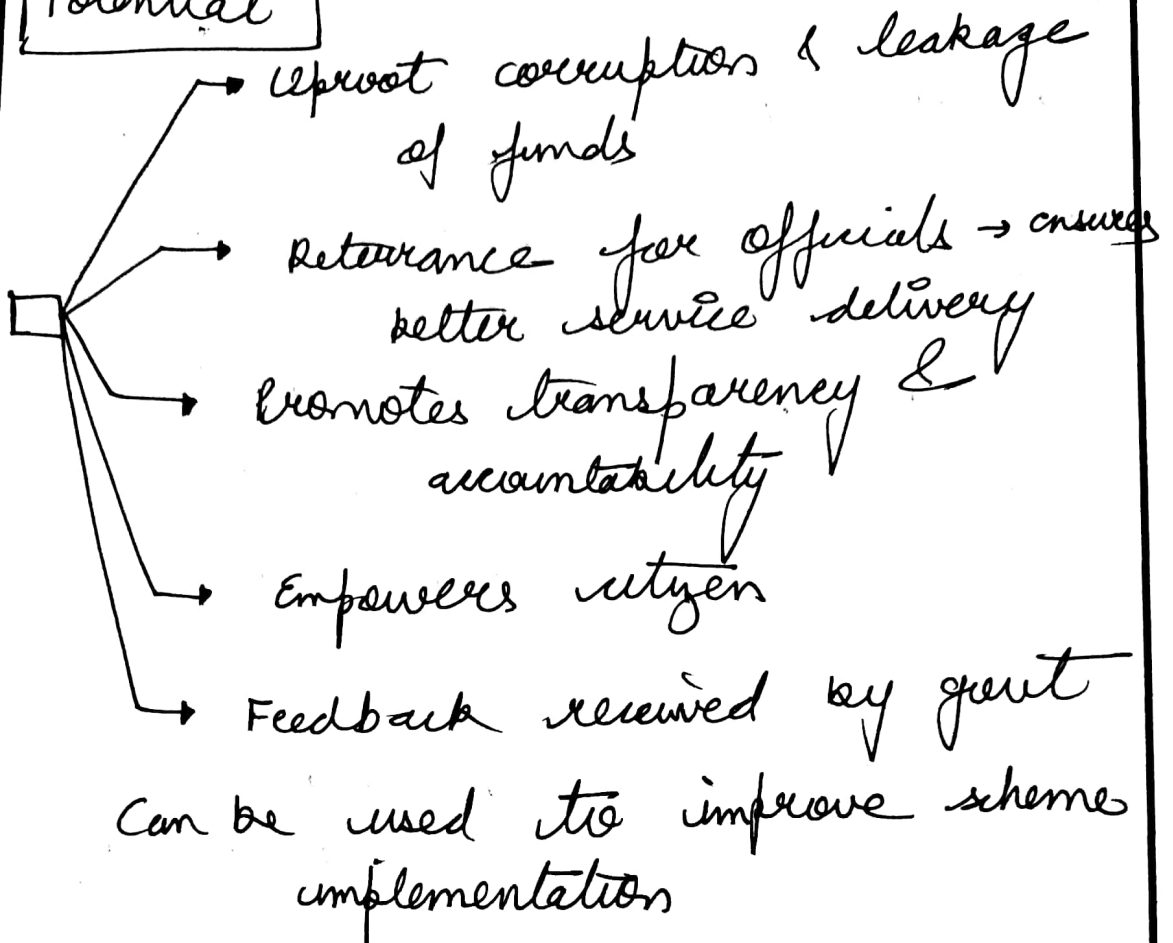 Potential
Uproot corruption & leakage
of funds
Deterrance for officials → ensures
better service delivery
Promotes transparency &
accountability
Empowers citizen
Feedback received by govt
Can be used to improve scheme
implementation